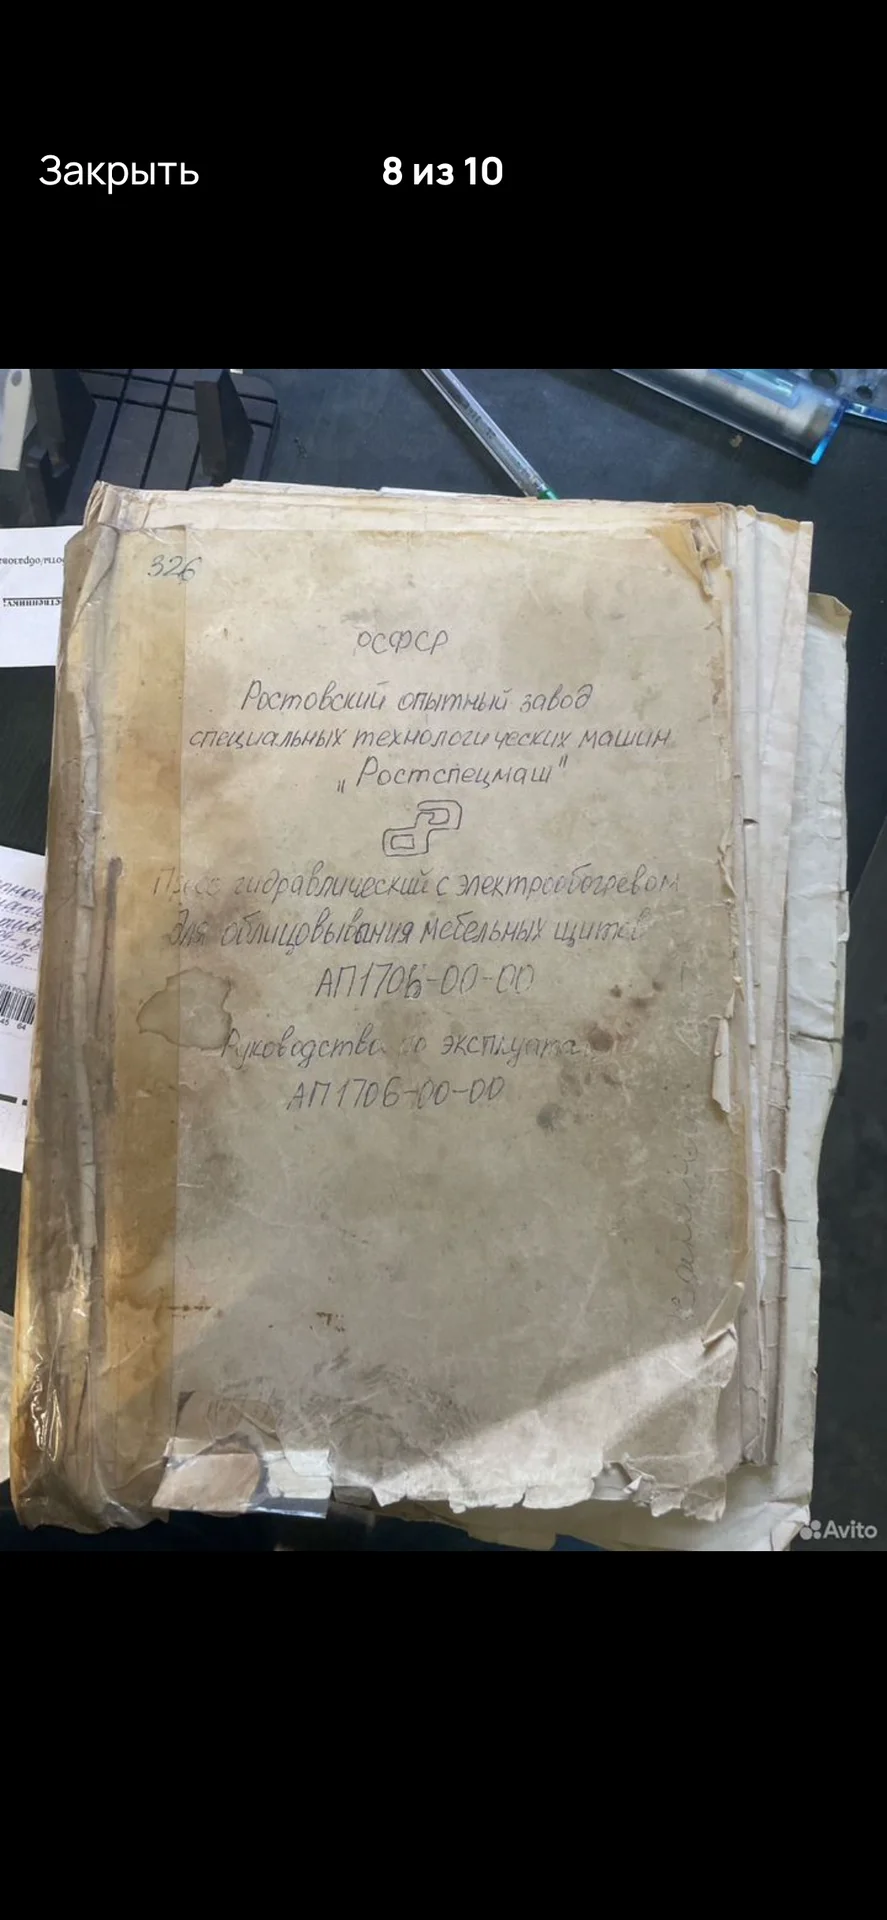 Закрыть
8 из 10
326
РСФСР
Ростовский опытный завод
специальных технологических машин
„Ростспецмаш"
Пресс гидравлический с электрообогревом
для облицовывания мебельных щитов
АП1706-00-00
Руководство по эксплуата
АП1706-00-00
45 64
Avito